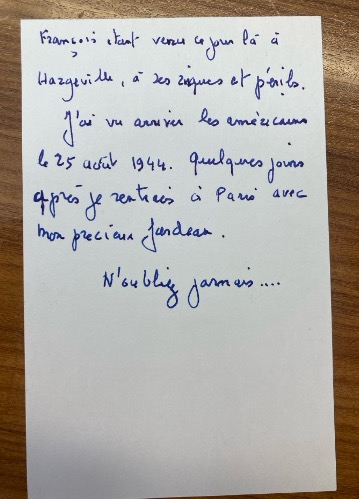 François étant venu ce jour là à
Hargeville, à ses risques et périls.
J'ai vu arriver les américains
le 25 août 1944. Quelques jours
après je rentrais à Paris avec
mon précieux fardeau.
N'oubliez jamais....